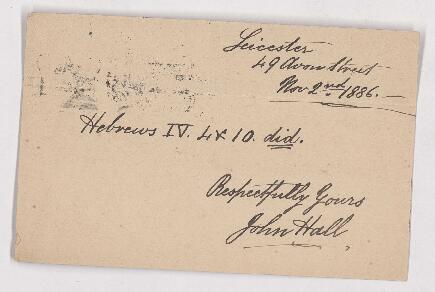 Leicester
49 Avon Street
Nov 2nd 1886.
Hebrews IV. 4 & 10. did.
Respectfully Yours
John Hall